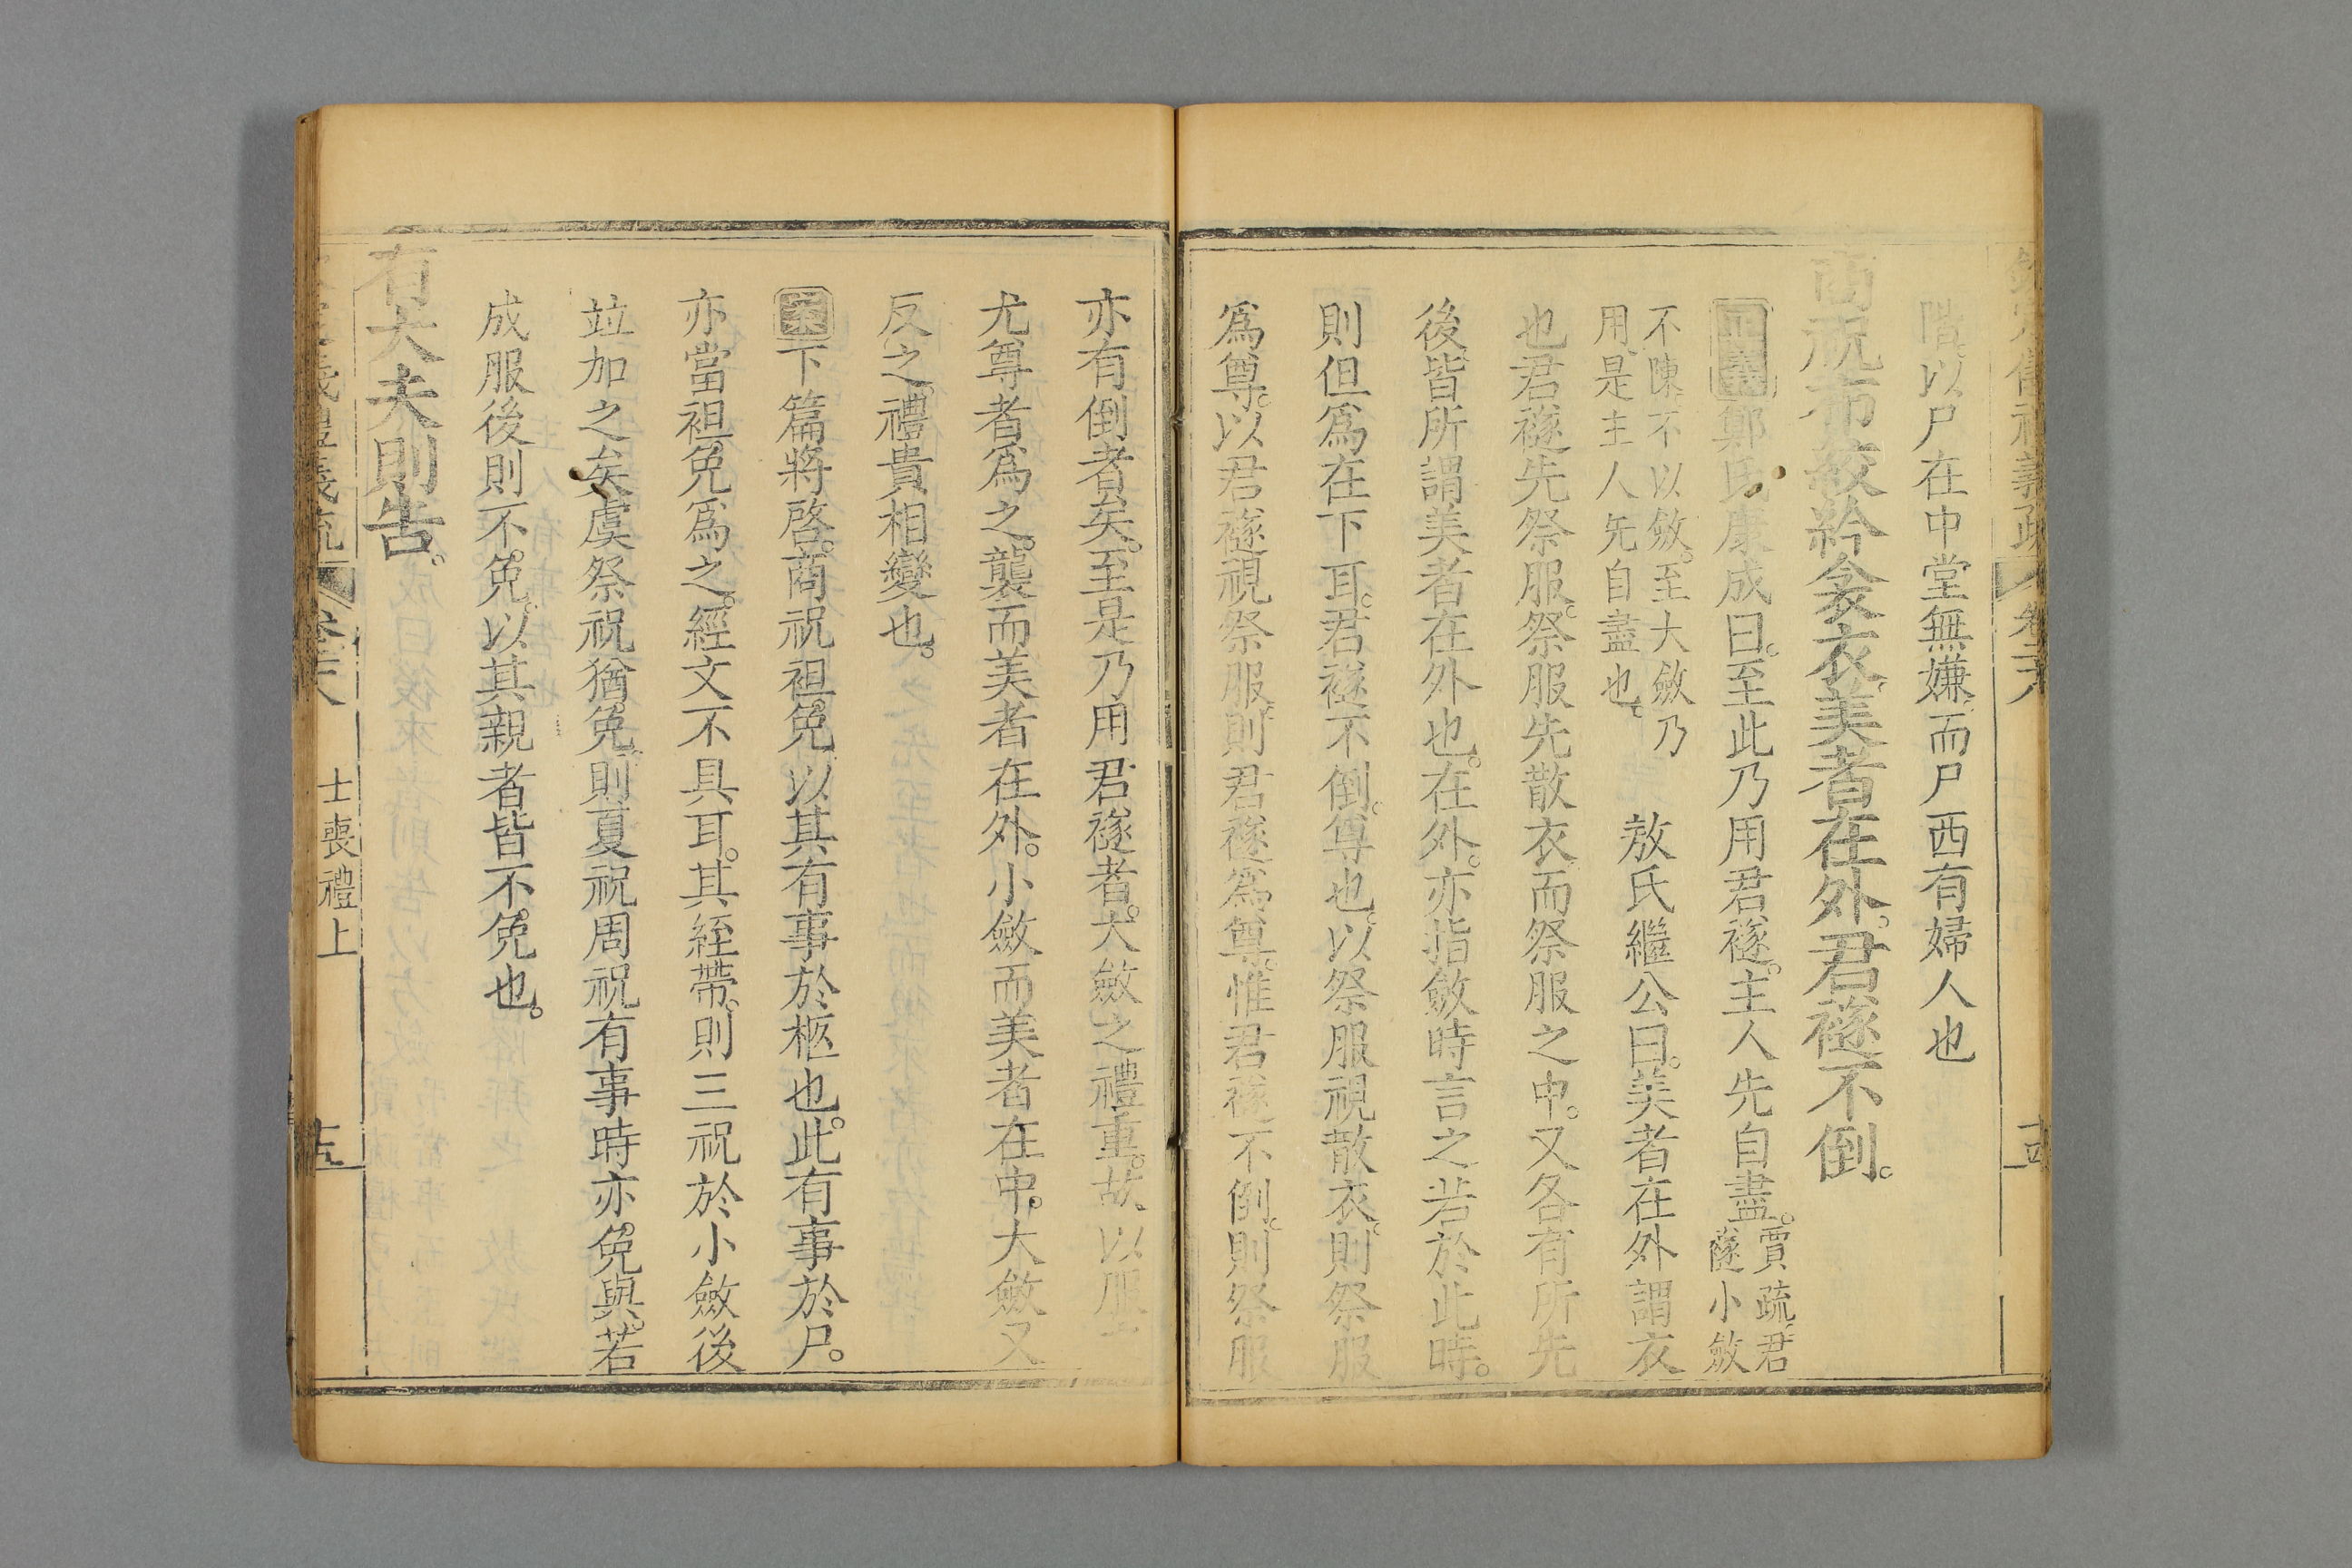 儀禮義疏 卷二十八 十四
隔。以尸在中堂無嫌。而尸西有婦人也
商祝布絞紟衾衣。美者在外。君襚不倒。
正義鄭氏康成曰。至此乃用君襚。主人先自盡。賈疏。君襚小斂
不陳。不以斂。至大斂乃用。是主人先自盡也。 敖氏繼公曰。美者在外。謂衣
也。君襚先祭服。祭服先散衣。而祭服之中。又各有所先
後。皆所謂美者在外也。在外。亦指斂時言之。若於此時。
則但為在下耳。君襚不倒。尊也。以祭服視散衣。則祭服
為尊。以君襚視祭服。則君襚為尊。惟君襚不倒。則祭服
亦有倒者矣。至是乃用君襚者。大斂之禮重。故以服之
尤尊者為之。襲而美者在外。小斂而美者在中。大斂又
反之。禮貴相變也。
案下篇將啓。商祝袒免。以其有事於柩也。此有事於尸。
亦當袒免為之。經文不具耳。其絰帶。則三祝於小斂後
竝加之矣。虞祭祝猶免。則夏祝周祝有事時亦免與。若
成服後則不免。以其親者皆不免也。
有大夫則告。
儀禮義疏 卷二十八 士喪禮上 十五